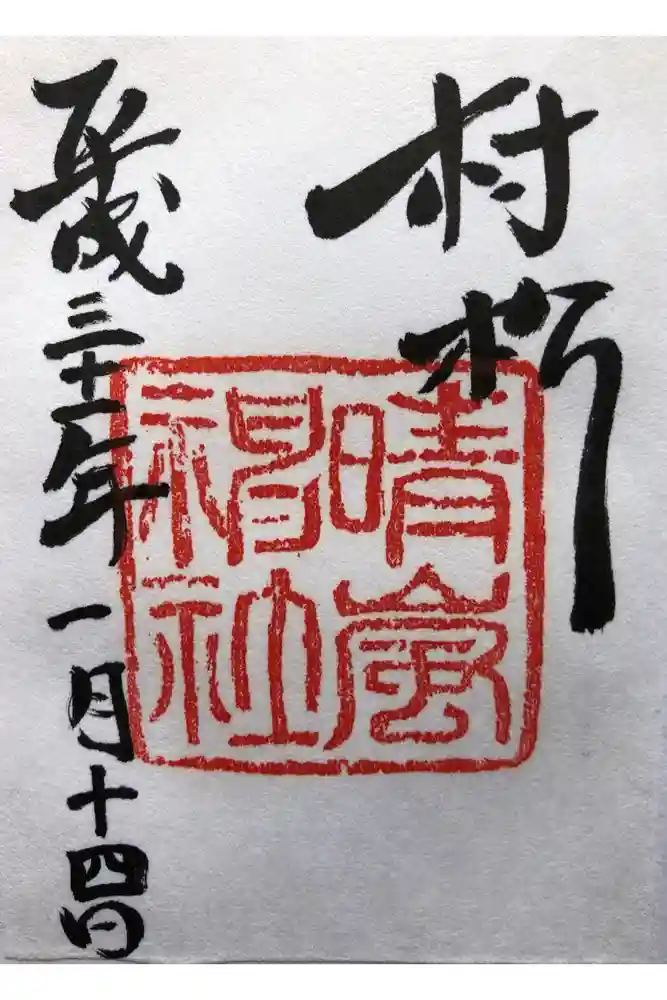 晴嵐
神社
平成三十一年一月十四日